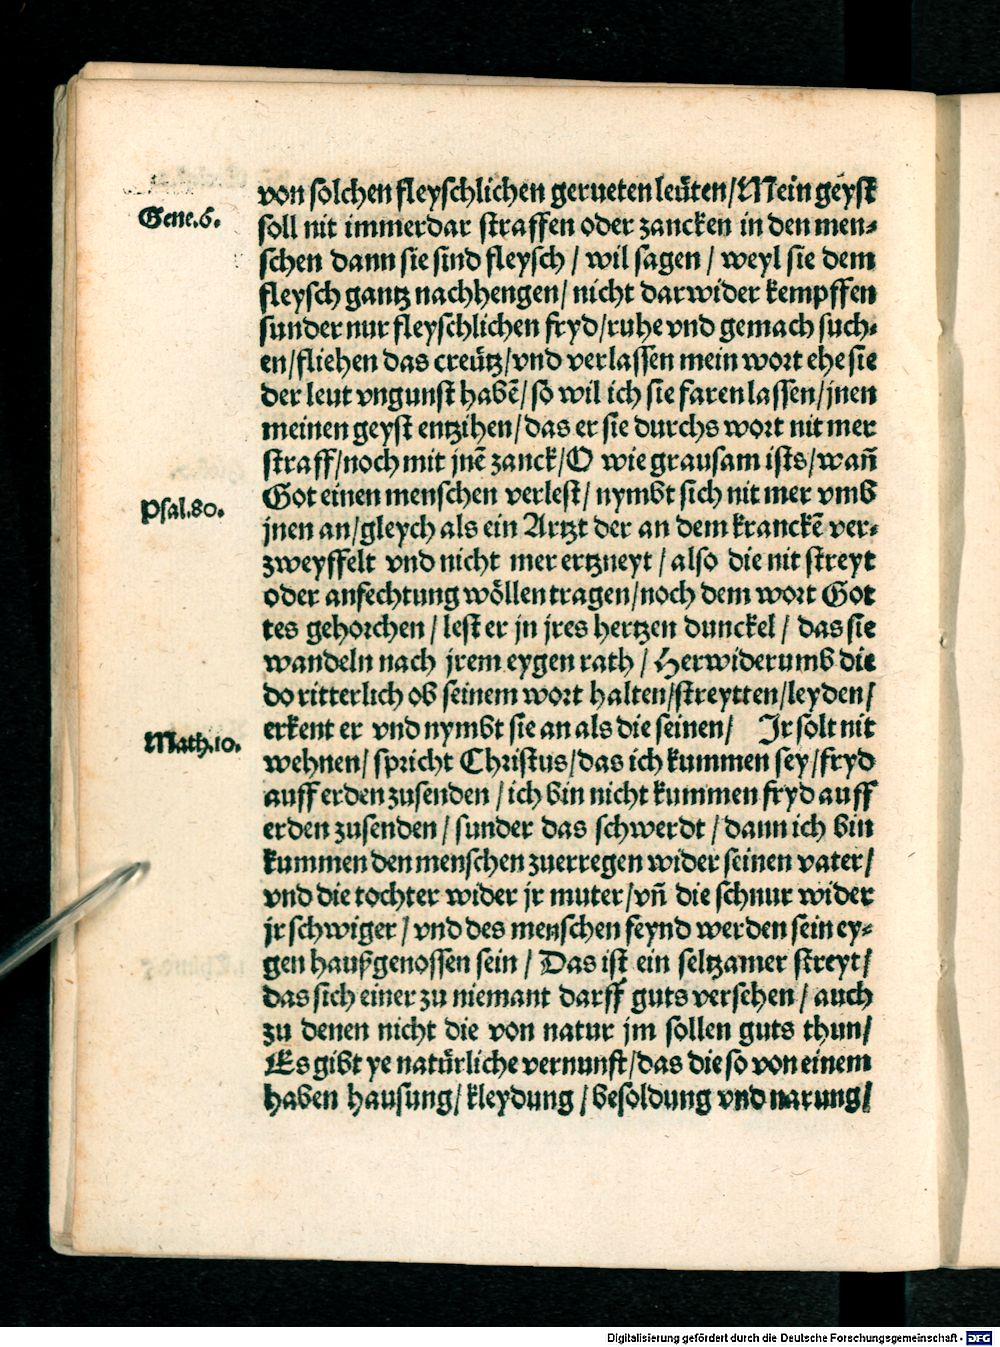 von solchen fleyschlichen gerueten leuͤten/Mein geyst
Gene.6.
soll nit immerdar straffen oder zancken in den men⸗
schen dann sie sind fleysch / wil sagen / weyl sie dem
fleysch gantz nachhengen/ nicht darwider kempffen
sunder nur fleyschlichen fryd/ruhe vnd gemach such⸗
en/fliehen das creuͤtz/vnd verlassen mein wort ehe sie
der leut vngunst habẽ/ so wil ich sie faren lassen/jnen
meinen geyst entzihen/das er sie durchs wort nit mer
straff/noch mit jnẽ zanck/O wie grausam ists/wañ
Got einen menschen verlest/ nymbt sich nit mer vmb
Psal.80.
jnen an/gleych als ein Artzt der an dem kranckẽ ver⸗
zweyffelt vnd nicht mer ertzneyt / also die nit streyt
oder anfechtung woͤllen tragen/noch dem wort Got
tes gehorchen / lest er jn jres hertzen dunckel / das sie
wandeln nach jrem eygen rath / Herwiderumb die
do ritterlich ob seinem wort halten/streytten/leyden/
erkent er vnd nymbt sie an als die seinen/ Jr solt nit
Math.10.
wehnen/ spricht Christus/das ich kummen sey/fryd
auff erden zusenden / ich bin nicht kummen fryd auff
erden zusenden / sunder das schwerdt / dann ich bin
kummen den menschen zuerregen wider seinen vater/
vnd die tochter wider jr muter/vñ die schnur wider
jr schwiger / vnd des menschen feynd werden sein ey⸗
gen haußgenossen sein / Das ist ein seltzamer streyt/
das sich einer zu niemant darff guts versehen / auch
zu denen nicht die von natur jm sollen guts thun/
Es gibt ye natuͤrliche vernunft/das die so von einem
haben hausung/ kleydung / besoldung vnd narung/
Digitalisierung gefördert durch die Deutsche Forschungsgemeinschaft - DFG